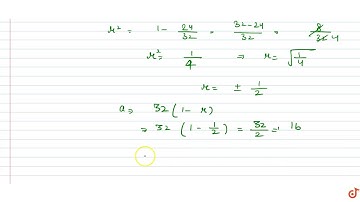 r² = 1 - 24/32 = 32-24/32 = 8/32 4
r² = 1/4 ⇒ r = √1/4
r = ± 1/2
a ⇒ 32 (1 - r)
⇒ 32 (1 - 1/2) = 32/2 = 16